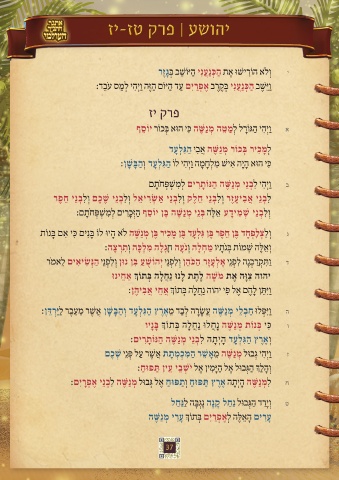 יהושע | פרק טז-יז
י וְלֹא הוֹרִישׁוּ אֶת הַכְּנַעֲנִי הַיּוֹשֵׁב בְּגָזֶר
וַיֵּשֶׁב הַכְּנַעֲנִי בְּקֶרֶב אֶפְרַיִם עַד הַיּוֹם הַזֶּה וַיְהִי לְמַס עֹבֵד:
פרק יז
א וַיְהִי הַגּוֹרָל לְמַטֵּה מְנַשֶּׁה כִּי הוּא בְּכוֹר יוֹסֵף
לְמָכִיר בְּכוֹר מְנַשֶּׁה אֲבִי הַגִּלְעָד
כִּי הוּא הָיָה אִישׁ מִלְחָמָה וַיְהִי לוֹ הַגִּלְעָד וְהַבָּשָׁן:
ב וַיְהִי לִבְנֵי מְנַשֶּׁה הַנּוֹתָרִים לְמִשְׁפְּחֹתָם
לִבְנֵי אֲבִיעֶזֶר וְלִבְנֵי חֵלֶק וְלִבְנֵי אַשְׂרִיאֵל וְלִבְנֵי שֶׁכֶם וְלִבְנֵי חֵפֶר
וְלִבְנֵי שְׁמִידָע אֵלֶּה בְּנֵי מְנַשֶּׁה בֶּן יוֹסֵף הַזְּכָרִים לְמִשְׁפְּחֹתָם:
ג וְלִצְלָפְחָד בֶּן חֵפֶר בֶּן גִּלְעָד בֶּן מָכִיר בֶּן מְנַשֶּׁה לֹא הָיוּ לוֹ בָּנִים כִּי אִם בָּנוֹת
וְאֵלֶּה שְׁמוֹת בְּנֹתָיו מַחְלָה וְנֹעָה חָגְלָה מִלְכָּה וְתִרְצָה:
ד וַתִּקְרַבְנָה לִפְנֵי אֶלְעָזָר הַכֹּהֵן וְלִפְנֵי יְהוֹשֻׁעַ בִּן נוּן וְלִפְנֵי הַנְּשִׂיאִים לֵאמֹר
יהוה צִוָּה אֶת מֹשֶׁה לָתֶת לָנוּ נַחֲלָה בְּתוֹךְ אַחֵינוּ
וַיִּתֵּן לָהֶם אֶל פִּי יהוה נַחֲלָה בְּתוֹךְ אֲחֵי אֲבִיהֶן:
ה וַיִּפְּלוּ חַבְלֵי מְנַשֶּׁה עֲשָׂרָה לְבַד מֵאֶרֶץ הַגִּלְעָד וְהַבָּשָׁן אֲשֶׁר מֵעֵבֶר לַיַּרְדֵּן:
ו כִּי בְּנוֹת מְנַשֶּׁה נָחֲלוּ נַחֲלָה בְּתוֹךְ בָּנָיו
וְאֶרֶץ הַגִּלְעָד הָיְתָה לִבְנֵי מְנַשֶּׁה הַנּוֹתָרִים:
ז וַיְהִי גְבוּל מְנַשֶּׁה מֵאָשֵׁר הַמִּכְמְתָת אֲשֶׁר עַל פְּנֵי שְׁכֶם
וְהָלַךְ הַגְּבוּל אֶל הַיָּמִין אֶל יֹשְׁבֵי עֵין תַּפּוּחַ:
ח לִמְנַשֶּׁה הָיְתָה אֶרֶץ תַּפּוּחַ וְתַפּוּחַ אֶל גְּבוּל מְנַשֶּׁה לִבְנֵי אֶפְרָיִם:
ט וְיָרַד הַגְּבוּל נַחַל קָנָה נֶגְבָּה לַנַּחַל
עָרִים הָאֵלֶּה לְאֶפְרַיִם בְּתוֹךְ עָרֵי מְנַשֶּׁה
37